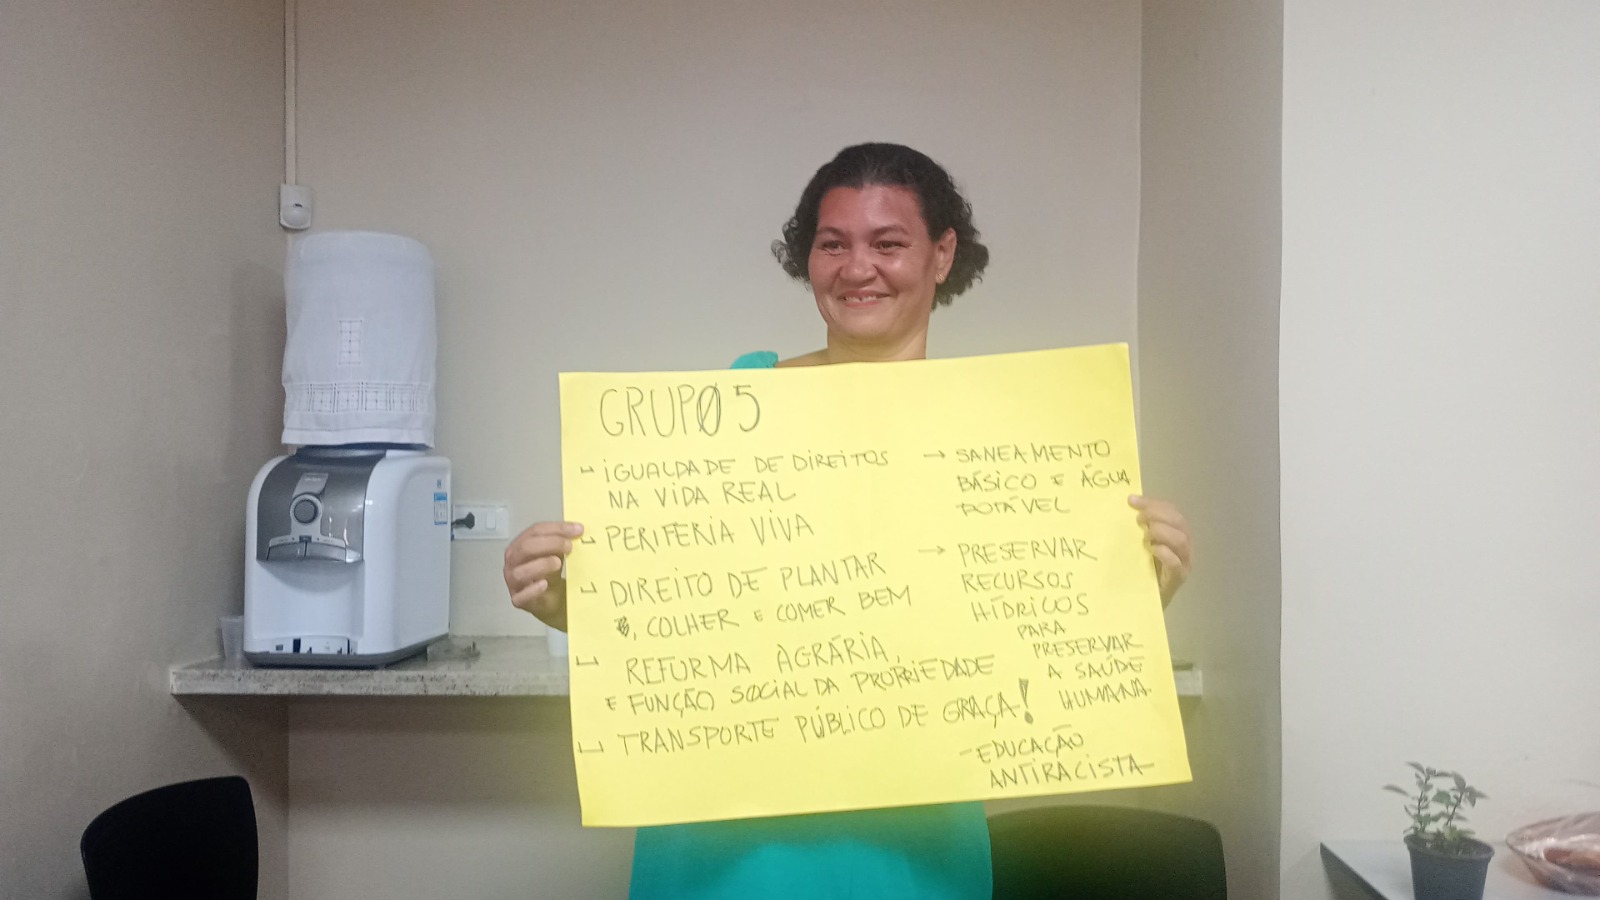 GRUPO 5
IGUALDADE DE DIREITOS
NA VIDA REAL
PERIFERIA VIVA
DIREITO DE PLANTAR
, COLHER E COMER BEM
REFORMA AGRÁRIA,
E FUNÇÃO SOCIAL DA PROPRIEDADE
TRANSPORTE PÚBLICO DE GRAÇA!
→ SANEAMENTO
BÁSICO E ÁGUA
POTÁVEL
→ PRESERVAR
RECURSOS
HÍDRICOS
PARA
PRESERVAR
A SAÚDE
HUMANA.
- EDUCAÇÃO
ANTIRACISTA